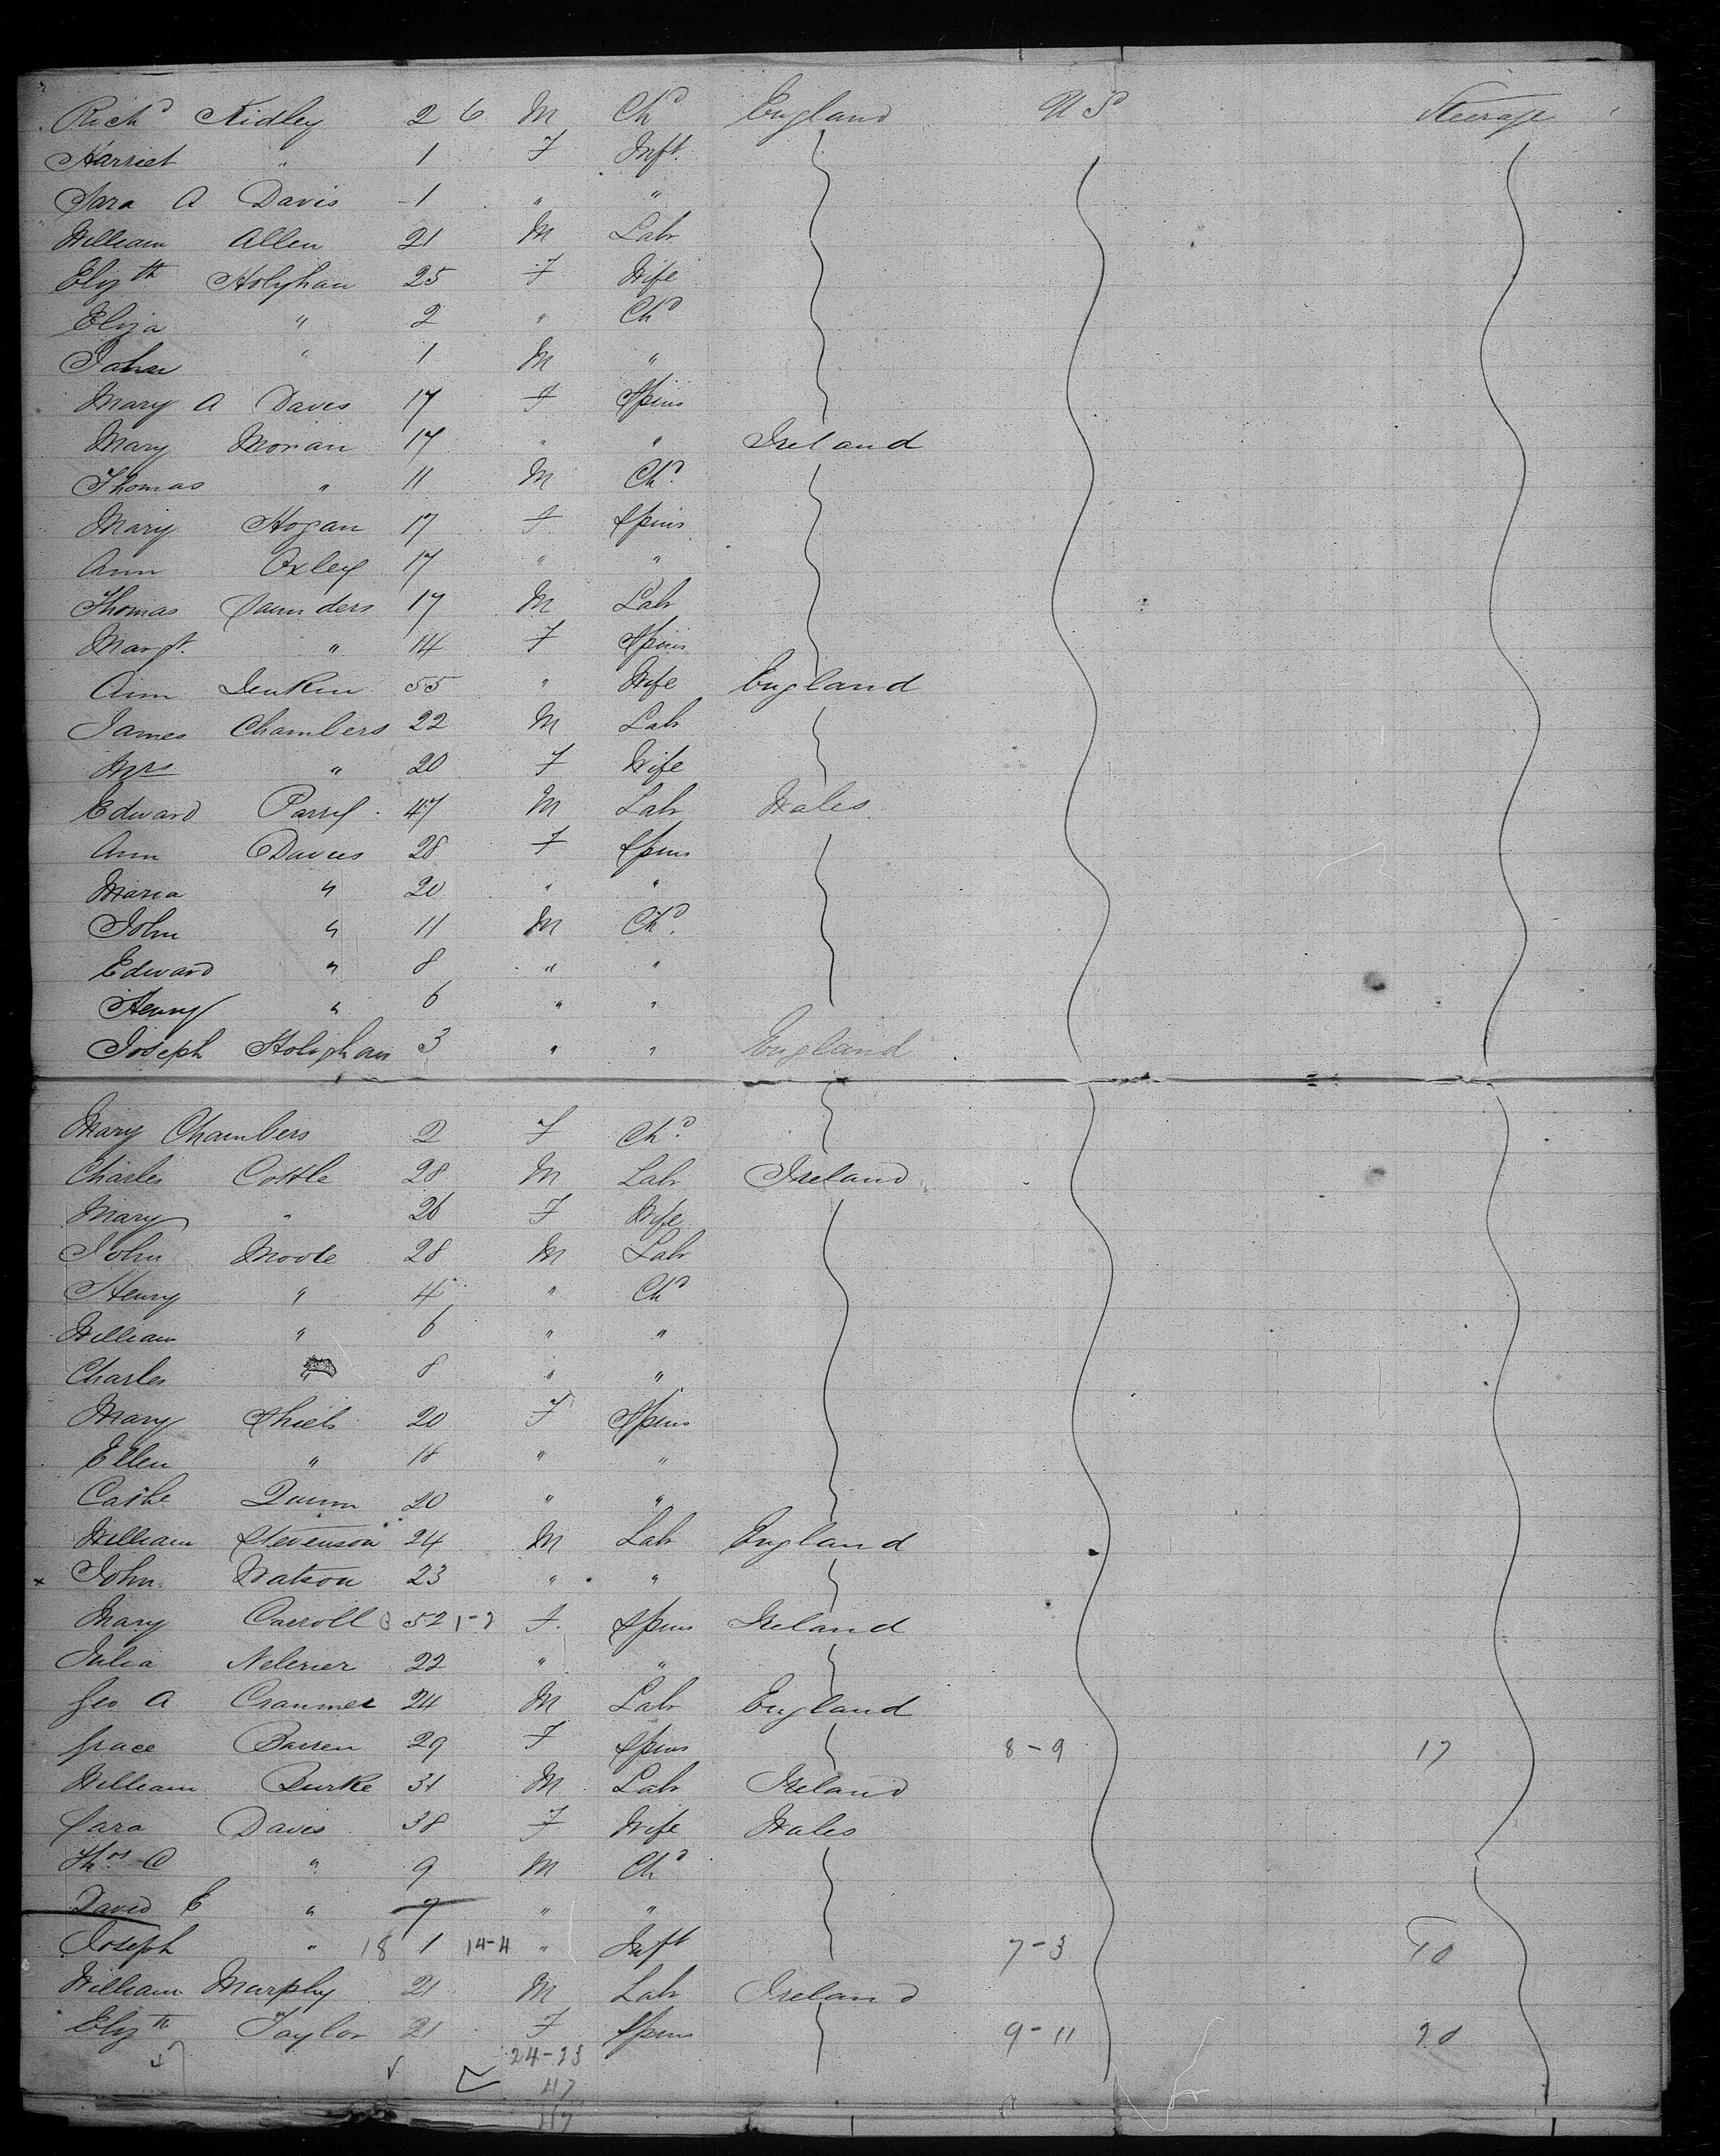 Richd Ridley 2 6 M Chd England U S Steerage
Harriet " 1 F Inft
Sara A Davis 1 " "
William Allen 21 M Labr
Elizth Holighan 25 F Wife
Eliza " 2 " Chd
John " 1 M "
Mary A Davis 17 F Spins
Mary Moran 17 " " Ireland
Thomas " 11 M Chd
Mary Hogan 17 F Spins
Ann Oxley 17 " "
Thomas Saunders 17 M Labr
Margt " 14 F Spins
Ann Jenkin 55 " Wife England
James Chambers 22 M Labr
Mrs " 20 F Wife
Edward Parry 47 M Labr Wales
Ann Davies 28 F Spins
Maria " 20 " "
John " 11 M Chd
Edward " 8 " "
Henry " 6 " "
Joseph Holighan 3 " " England
Mary Chambers 2 F Chd
Charles Cottle 28 M Labr Ireland
Mary " 26 F Wife
John Moore 28 M Labr
Henry " 4 " Chd
William " 6 " "
Charles " 8 " "
Mary Shiels 20 F Spins
Ellen " 18 " "
Cathe Quinn 20 " "
William Stevenson 24 M Labr England
x John Watson 23 " "
Mary Carroll 52 F Spins Ireland
Julia 22 " "
Geo A Cranmer 24 M Labr England
Grace Barren 29 F Spins 8-9 17
William Burke 31 M Labr Ireland
Sara Davis 38 F Wife Wales
Thos C " 9 M Chd
David E " 7 " "
Joseph " 18 1 14-4 " Inft 7-3 10
William Murphy 21 M Labr Ireland
Elizth Taylor 21 F Spins 9-11 20
24-23
47
47